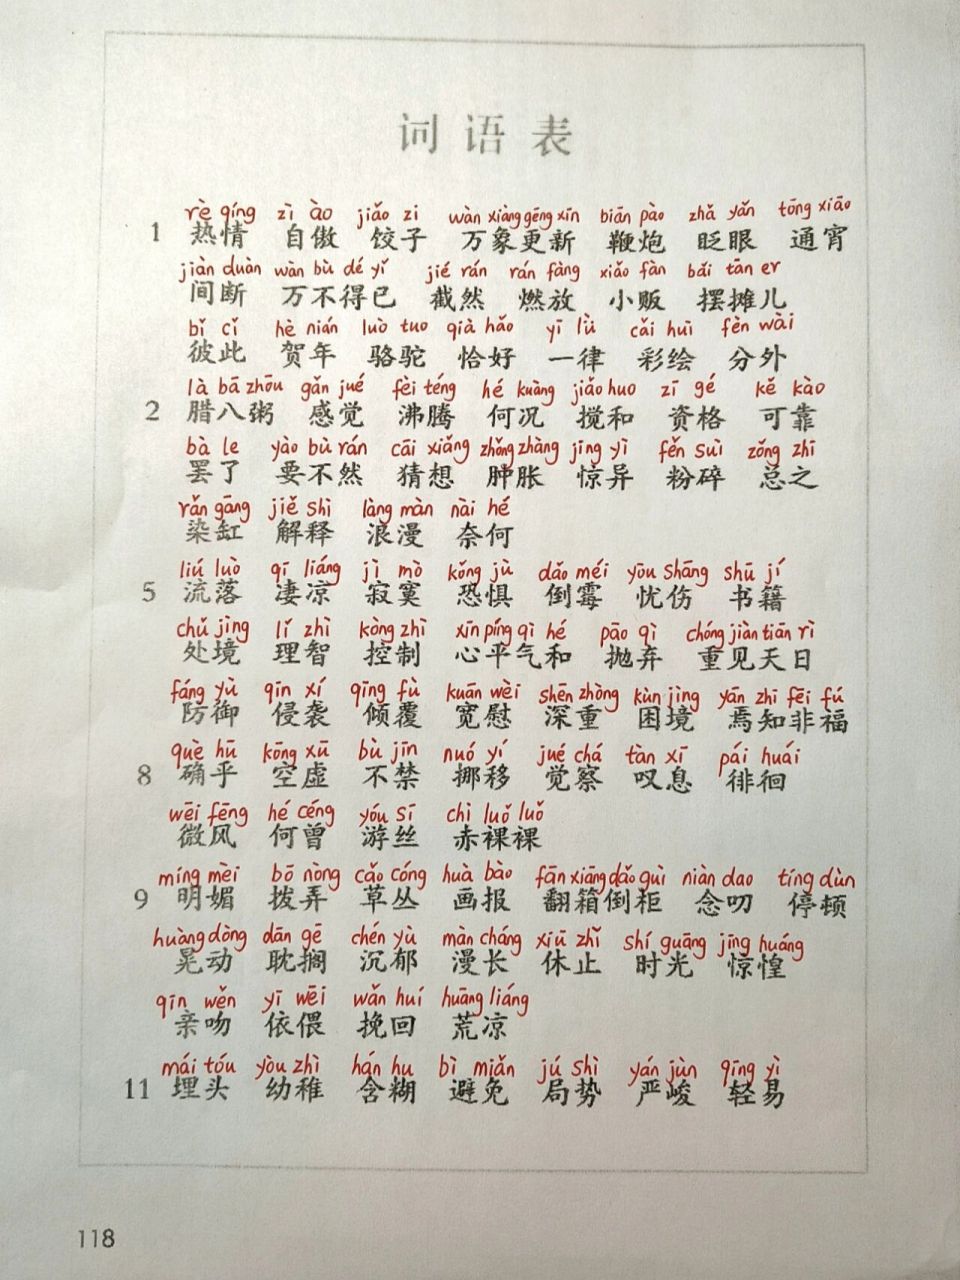 词语表
rè qíng zì ào jiǎo zi wàn xiàng gēng xīn biān pào zhǎ yǎn tōng xiāo
1 热情 自傲 饺子 万象更新 鞭炮 眨眼 通宵
jiàn duàn wàn bù dé yǐ jié rán rán fàng xiǎo fàn bǎi tān er
间断 万不得已 截然 燃放 小贩 摆摊儿
bǐ cǐ hè nián luò tuo qià hǎo yī lǜ cǎi huì fèn wài
彼此 贺年 骆驼 恰好 一律 彩绘 分外
là bā zhōu gǎn jué fèi téng hé kuàng jiǎo huo zī gé kě kào
2 腊八粥 感觉 沸腾 何况 搅和 资格 可靠
bà le yào bù rán cāi xiǎng zhǒng zhàng jīng yì fěn suì zǒng zhī
罢了 要不然 猜想 肿胀 惊异 粉碎 总之
rǎn gāng jiě shì làng màn nài hé
染缸 解释 浪漫 奈何
liú luò qī liáng jì mò kǒng jù dǎo méi yōu shāng shū jí
5 流落 凄凉 寂寞 恐惧 倒霉 忧伤 书籍
chǔ jìng lǐ zhì kòng zhì xīn píng qì hé pāo qì chóng jiàn tiān rì
处境 理智 控制 心平气和 抛弃 重见天日
fáng yù qīn xí qīng fù kuān wèi shēn zhòng kùn jìng yān zhī fēi fú
防御 侵袭 倾覆 宽慰 深重 困境 焉知非福
què hū kōng xū bù jīn nuó yí jué chá tàn xī pái huái
8 确乎 空虚 不禁 挪移 觉察 叹息 徘徊
wēi fēng hé céng yóu sī chì luǒ luǒ
微风 何曾 游丝 赤裸裸
míng mèi bō nòng cǎo cóng huà bào fān xiāng dǎo guì niàn dao tíng dùn
9 明媚 拨弄 草丛 画报 翻箱倒柜 念叨 停顿
huàng dòng dān gē chén yù màn cháng xiū zhǐ shí guāng jīng huáng
晃动 耽搁 沉郁 漫长 休止 时光 惊惶
qīn wěn yī wēi wǎn huí huāng liáng
亲吻 依偎 挽回 荒凉
mái tóu yòu zhì hán hu bì miǎn jú shì yán jùn qīng yì
11 埋头 幼稚 含糊 避免 局势 严峻 轻易
118